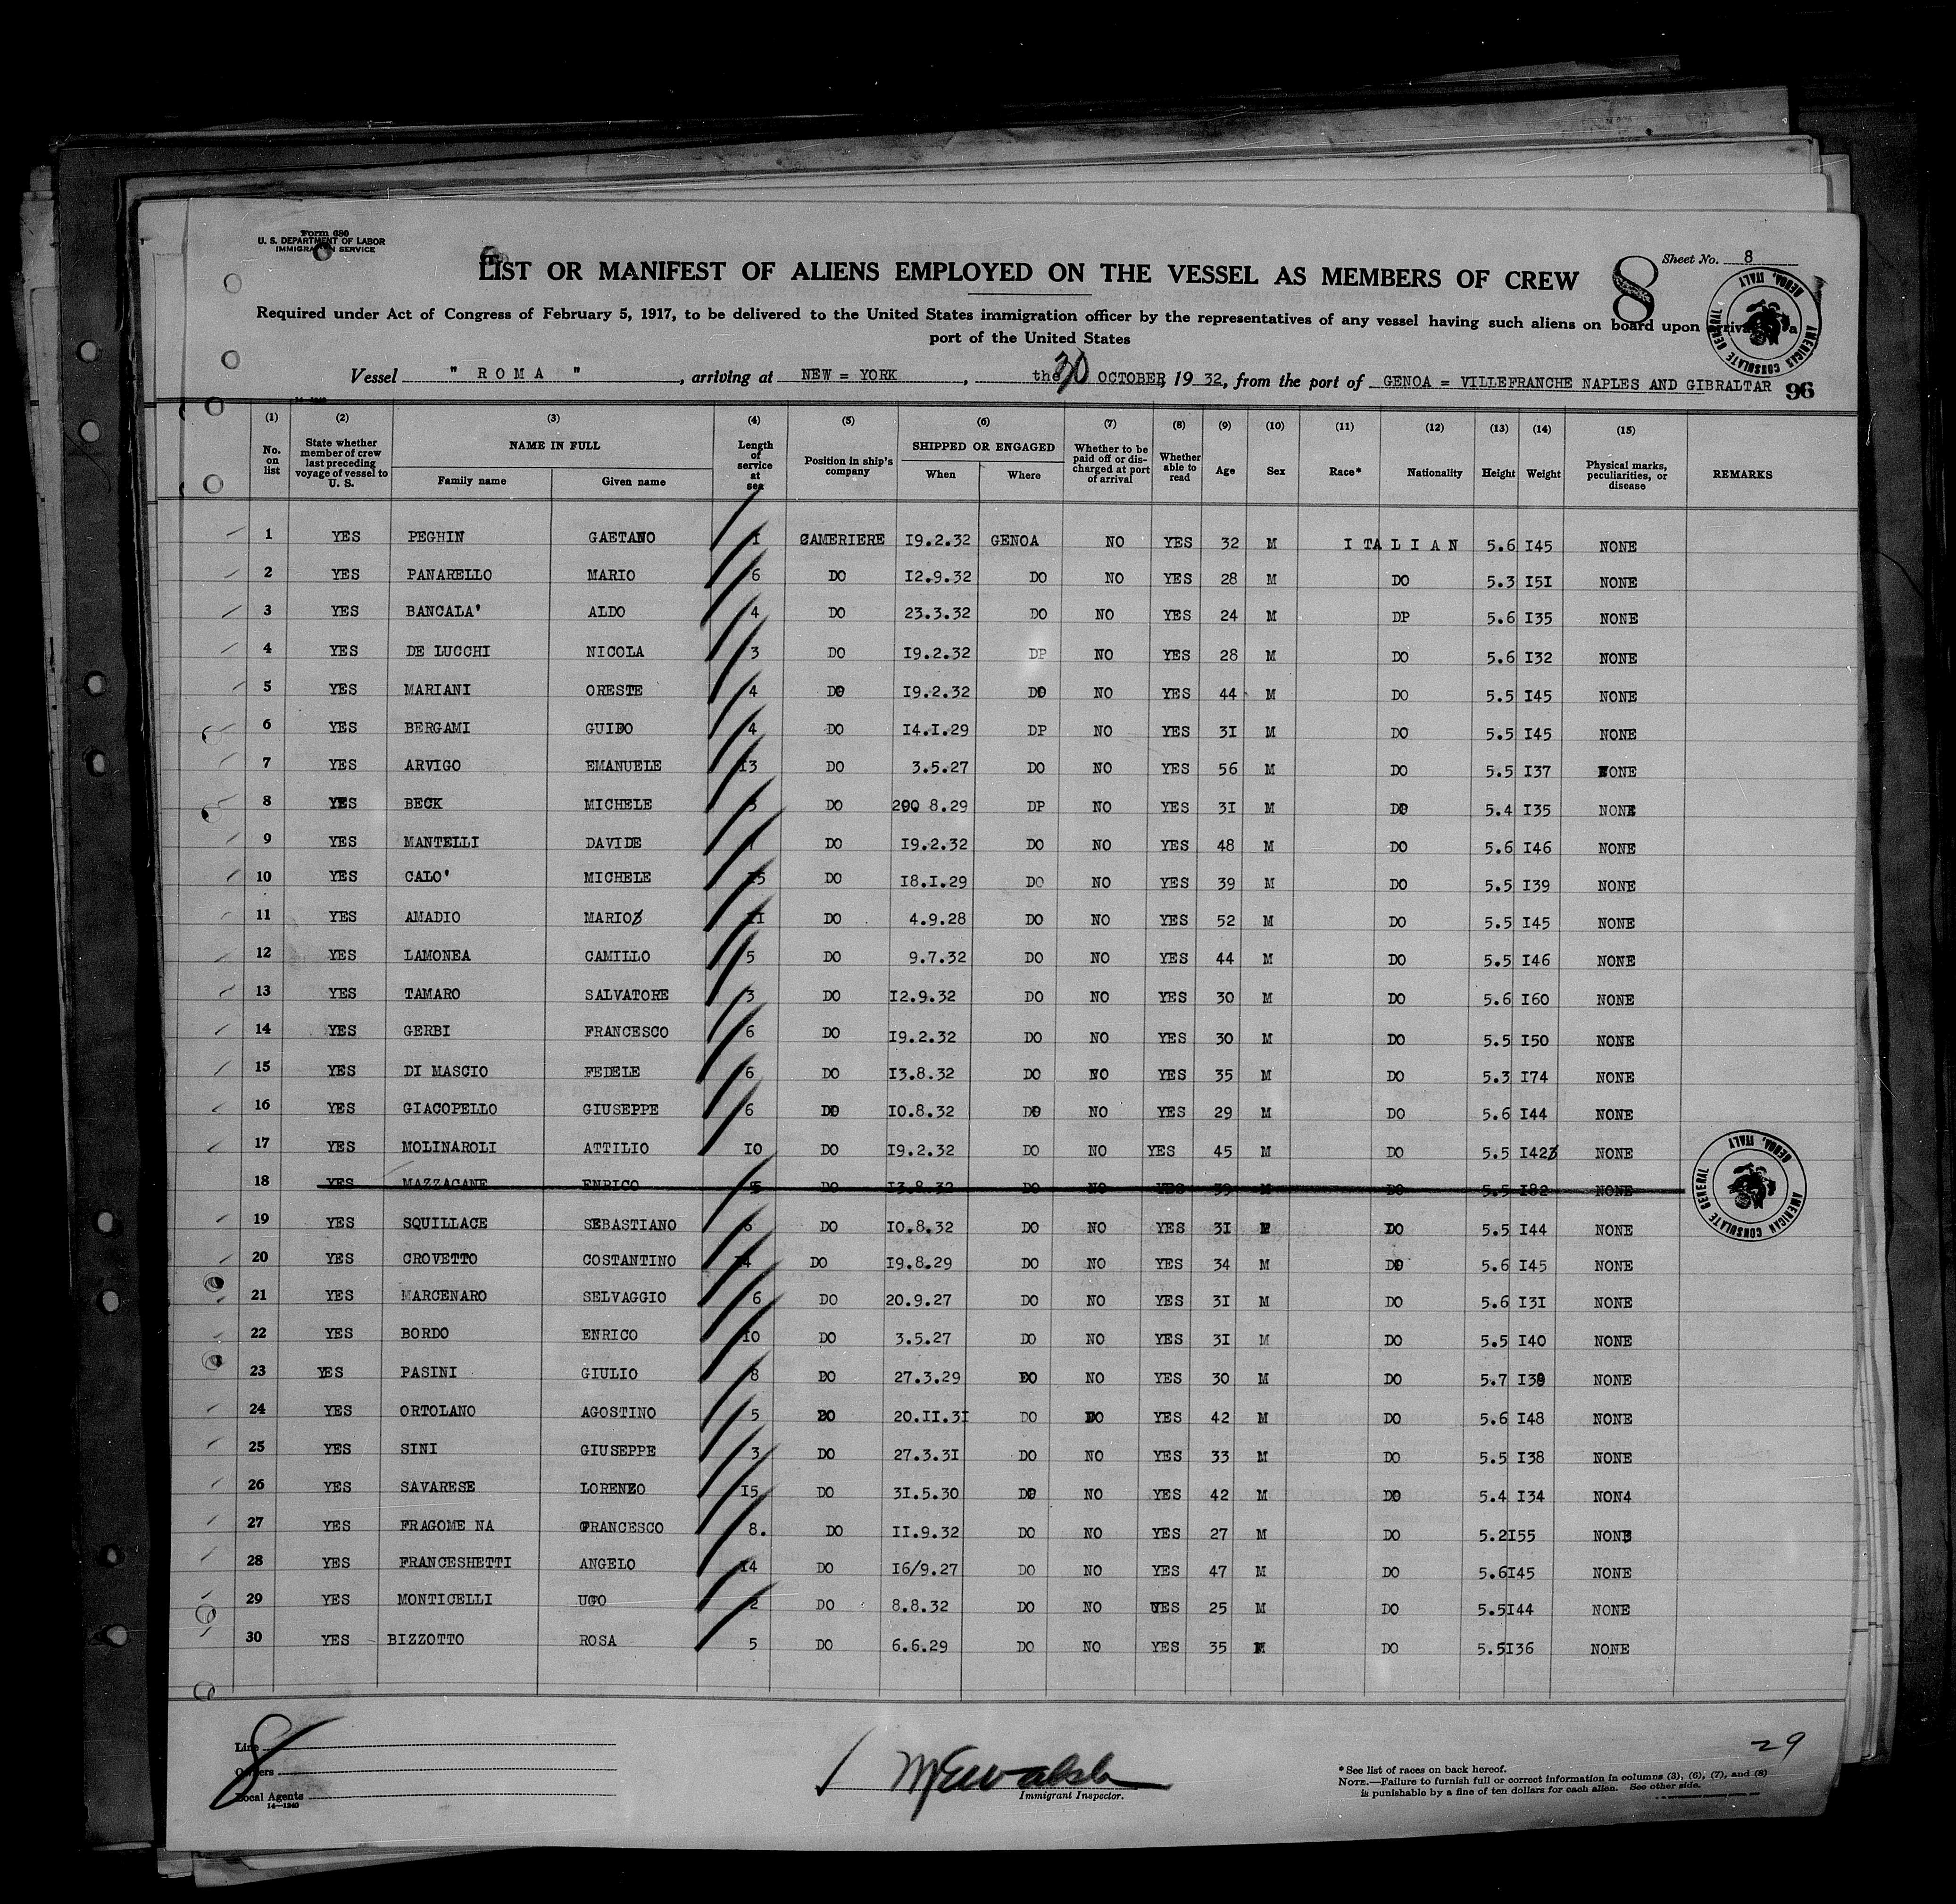 Form 680
U. S. DEPARTMENT OF LABOR
IMMIGRATION SERVICE
Sheet No. 8
8
LIST OR MANIFEST OF ALIENS EMPLOYED ON THE VESSEL AS MEMBERS OF CREW
Required under Act of Congress of February 5, 1917, to be delivered to the United States immigration officer by the representatives of any vessel having such aliens on board upon arrival at a
port of the United States
AMERICAN CONSULATE GENERAL GENOA, ITALY
Vessel " ROMA ", arriving at NEW = YORK, the 30 OCTOBER, 19 32, from the port of GENOA = VILLEFRANCHE NAPLES AND GIBRALTAR 96
(1) (2) (3) (4) (5) (6) (7) (8) (9) (10) (11) (12) (13) (14) (15)
No. on list State whether member of crew last preceding voyage of vessel to U. S. NAME IN FULL Family name Given name Length of service at sea Position in ship's company SHIPPED OR ENGAGED When Where Whether to be paid off or discharged at port of arrival Whether able to read Age Sex Race* Nationality Height Weight Physical marks, peculiarities, or disease REMARKS
1 YES PEGHIN GAETANO 1 CAMERIERE I9.2.32 GENOA NO YES 32 M ITALIAN 5.6 I45 NONE
2 YES PANARELLO MARIO 6 DO I2.9.32 DO NO YES 28 M DO 5.3 I5I NONE
3 YES BANCALA' ALDO 4 DO 23.3.32 DO NO YES 24 M DP 5.6 I35 NONE
4 YES DE LUCCHI NICOLA 3 DO I9.2.32 DP NO YES 28 M DO 5.6 I32 NONE
5 YES MARIANI ORESTE 4 DO I9.2.32 DO NO YES 44 M DO 5.5 I45 NONE
6 YES BERGAMI GUIDO 4 DO I4.I.29 DP NO YES 3I M DO 5.5 I45 NONE
7 YES ARVIGO EMANUELE I3 DO 3.5.27 DO NO YES 56 M DO 5.5 I37 NONE
8 YES BECK MICHELE DO 8.29 DP NO YES 3I M DO 5.4 I35 NONE
9 YES MANTELLI DAVIDE DO I9.2.32 DO NO YES 48 M DO 5.6 I46 NONE
10 YES CALO' MICHELE I5 DO I8.I.29 DO NO YES 39 M DO 5.5 I39 NONE
11 YES AMADIO MARIO II DO 4.9.28 DO NO YES 52 M DO 5.5 I45 NONE
12 YES LAMONEA CAMILLO 5 DO 9.7.32 DO NO YES 44 M DO 5.5 I46 NONE
13 YES TAMARO SALVATORE 3 DO I2.9.32 DO NO YES 30 M DO 5.6 I60 NONE
14 YES GERBI FRANCESCO 6 DO I9.2.32 DO NO YES 30 M DO 5.5 I50 NONE
15 YES DI MASCIO FEDELE 6 DO I3.8.32 DO NO YES 35 M DO 5.3 I74 NONE
16 YES GIACOPELLO GIUSEPPE 6 DO I0.8.32 DO NO YES 29 M DO 5.6 I44 NONE
17 YES MOLINAROLI ATTILIO IO DO I9.2.32 DO NO YES 45 M DO 5.5 I42 NONE
18 YES MAZZACANE ENRICO 5 DO I3.8.32 DO NO YES 39 M DO 5.5 I82 NONE
AMERICAN CONSULATE GENERAL GENOA, ITALY
19 YES SQUILLACE SEBASTIANO 6 DO IO.8.32 DO NO YES 3I M DO 5.5 I44 NONE
20 YES CROVETTO COSTANTINO I4 DO I9.8.29 DO NO YES 34 M DO 5.6 I45 NONE
21 YES MARCENARO SELVAGGIO 6 DO 20.9.27 DO NO YES 3I M DO 5.6 I3I NONE
22 YES BORDO ENRICO IO DO 3.5.27 DO NO YES 3I M DO 5.5 I40 NONE
23 YES PASINI GIULIO 8 DO 27.3.29 DO NO YES 30 M DO 5.7 I38 NONE
24 YES ORTOLANO AGOSTINO 5 DO 20.II.3I DO NO YES 42 M DO 5.6 I48 NONE
25 YES SINI GIUSEPPE 3 DO 27.3.3I DO NO YES 33 M DO 5.5 I38 NONE
26 YES SAVARESE LORENZO I5 DO 3I.5.30 DO NO YES 42 M DO 5.4 I34 NON4
27 YES FRAGOME NA FRANCESCO 8. DO II.9.32 DO NO YES 27 M DO 5.2 I55 NONE
28 YES FRANCESHETTI ANGELO I4 DO I6/9.27 DO NO YES 47 M DO 5.6 I45 NONE
29 YES MONTICELLI UGO 2 DO 8.8.32 DO NO YES 25 M DO 5.5 I44 NONE
30 YES BIZZOTTO ROSA 5 DO 6.6.29 DO NO YES 35 F DO 5.5 I36 NONE
29
8
Line
Owners
Local Agents
14—1240
Immigrant Inspector.
* See list of races on back hereof.
NOTE.—Failure to furnish full or correct information in columns (3), (6), (7), and (8)
is punishable by a fine of ten dollars for each alien. See other side.